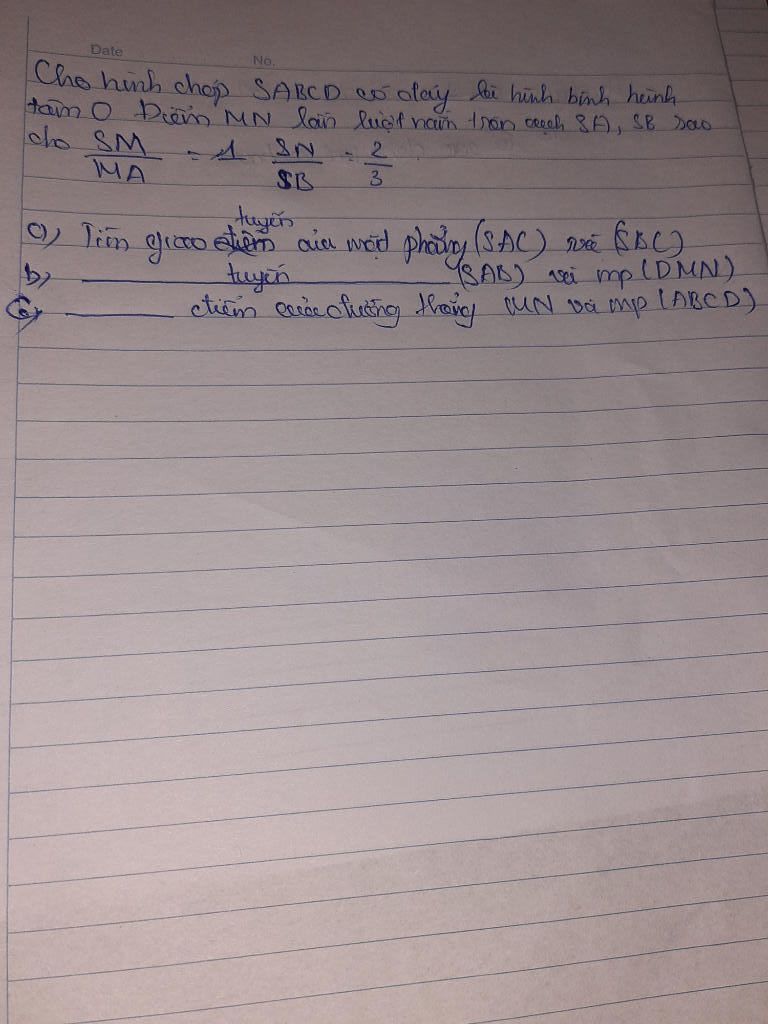 Date No.
Cho hình chóp SABCD có đáy là hình bình hành
tâm O Điểm MN lần lượt nằm trên cạnh SA, SB sao
cho SM/MA = 1 SN/SB = 2/3
tuyến
a, Tìm giao điểm của mặt phẳng (SAC) và (SBC)
b, tuyến (SAB) và mp (DMN)
c, điểm của đường thẳng MN và mp (ABCD)